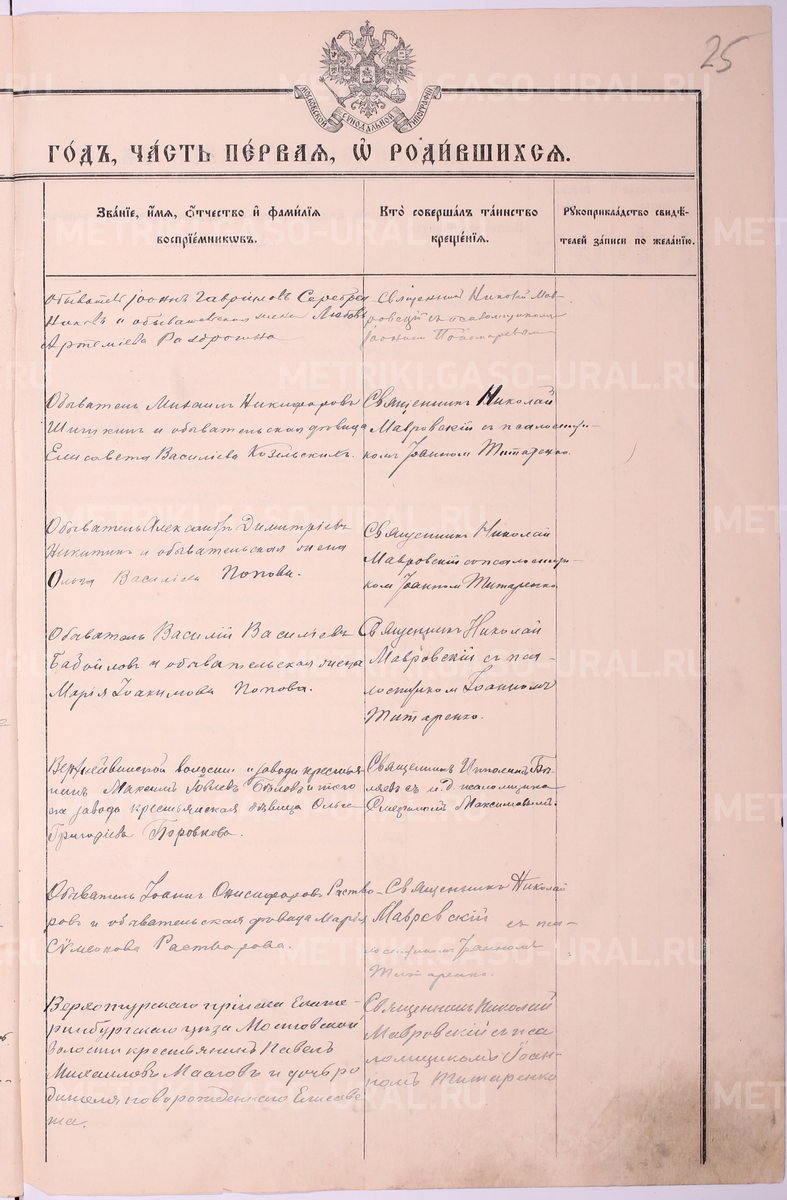 25
МОСКОВСКОЙ СѴНОДАЛЬНОЙ ТИПОГРАФІИ
ГО́ДЪ, ЧА́СТЬ ПЕ́РВАЯ, Ѡ҆ РОДИ́ВШИХСЯ.
Зва́нїе, и҆́мя, ѻ҆́тчество и҆ фами́лїя
воспрїе́мникѡвъ.
Кто̀ соверша́лъ та́инство
креще́нїя.
Рꙋкоприкла́дство свидѣ́-
телей за́писи по жела́нїю.
Обыватель Іоаннъ Гавріиловъ Серебря
никовъ и обывательская жена Любовь
Артеміева
Священникъ Николай Мав-
ровскій съ псаломщикомъ
Іоанномъ
Обыватель Михаилъ Никифоровъ
Шишкинъ и обывательская дѣвица
Елисавета Василіева Козельскихъ.
Священникъ Николай
Мавровскій съ псаломщи-
комъ Іоанномъ Титаренко.
Обыватель Александръ Димитріевъ
Никитинъ и обывательская жена
Ольга Василіева Попова.
Священникъ Николай
Мавровскій съ псаломщи-
комъ Іоанномъ Титаренко
Обыватель Василій Василіевъ
Бабойловъ и обывательская жена
Марія Іоакимова Попова.
Священникъ Николай
Мавровскій съ пса-
ломщикомъ Іоанномъ
Титаренко.
Верхнейвинской волости и завода крестья
нинъ Максимъ Бѣловъ и того
же завода крестьянская дѣвица Ольга
Григоріева Боровкова.
Священникъ Ипполитъ Бѣ-
ляевъ съ и. д. псаломщика
Максимовымъ.
Обыватель Іоаннъ Онисифоровъ Раство
ровъ и обывательская дѣвица Марія
Сѵмеонова Растворова.
Священникъ Николай
Мавровскій съ пса-
ломщикомъ Іоанномъ
Титаренко.
Верхотурскаго пріиска Екате-
ринбургскаго уѣзда Мостовской
волости крестьянинъ Павелъ
Михаиловъ и дочь ро
дителя новорожденнаго Елисаве
та.
Священникъ Николай
Мавровскій съ пса
ломщикомъ Іоан-
номъ Титаренко
METRIKI.GASO-URAL.RU